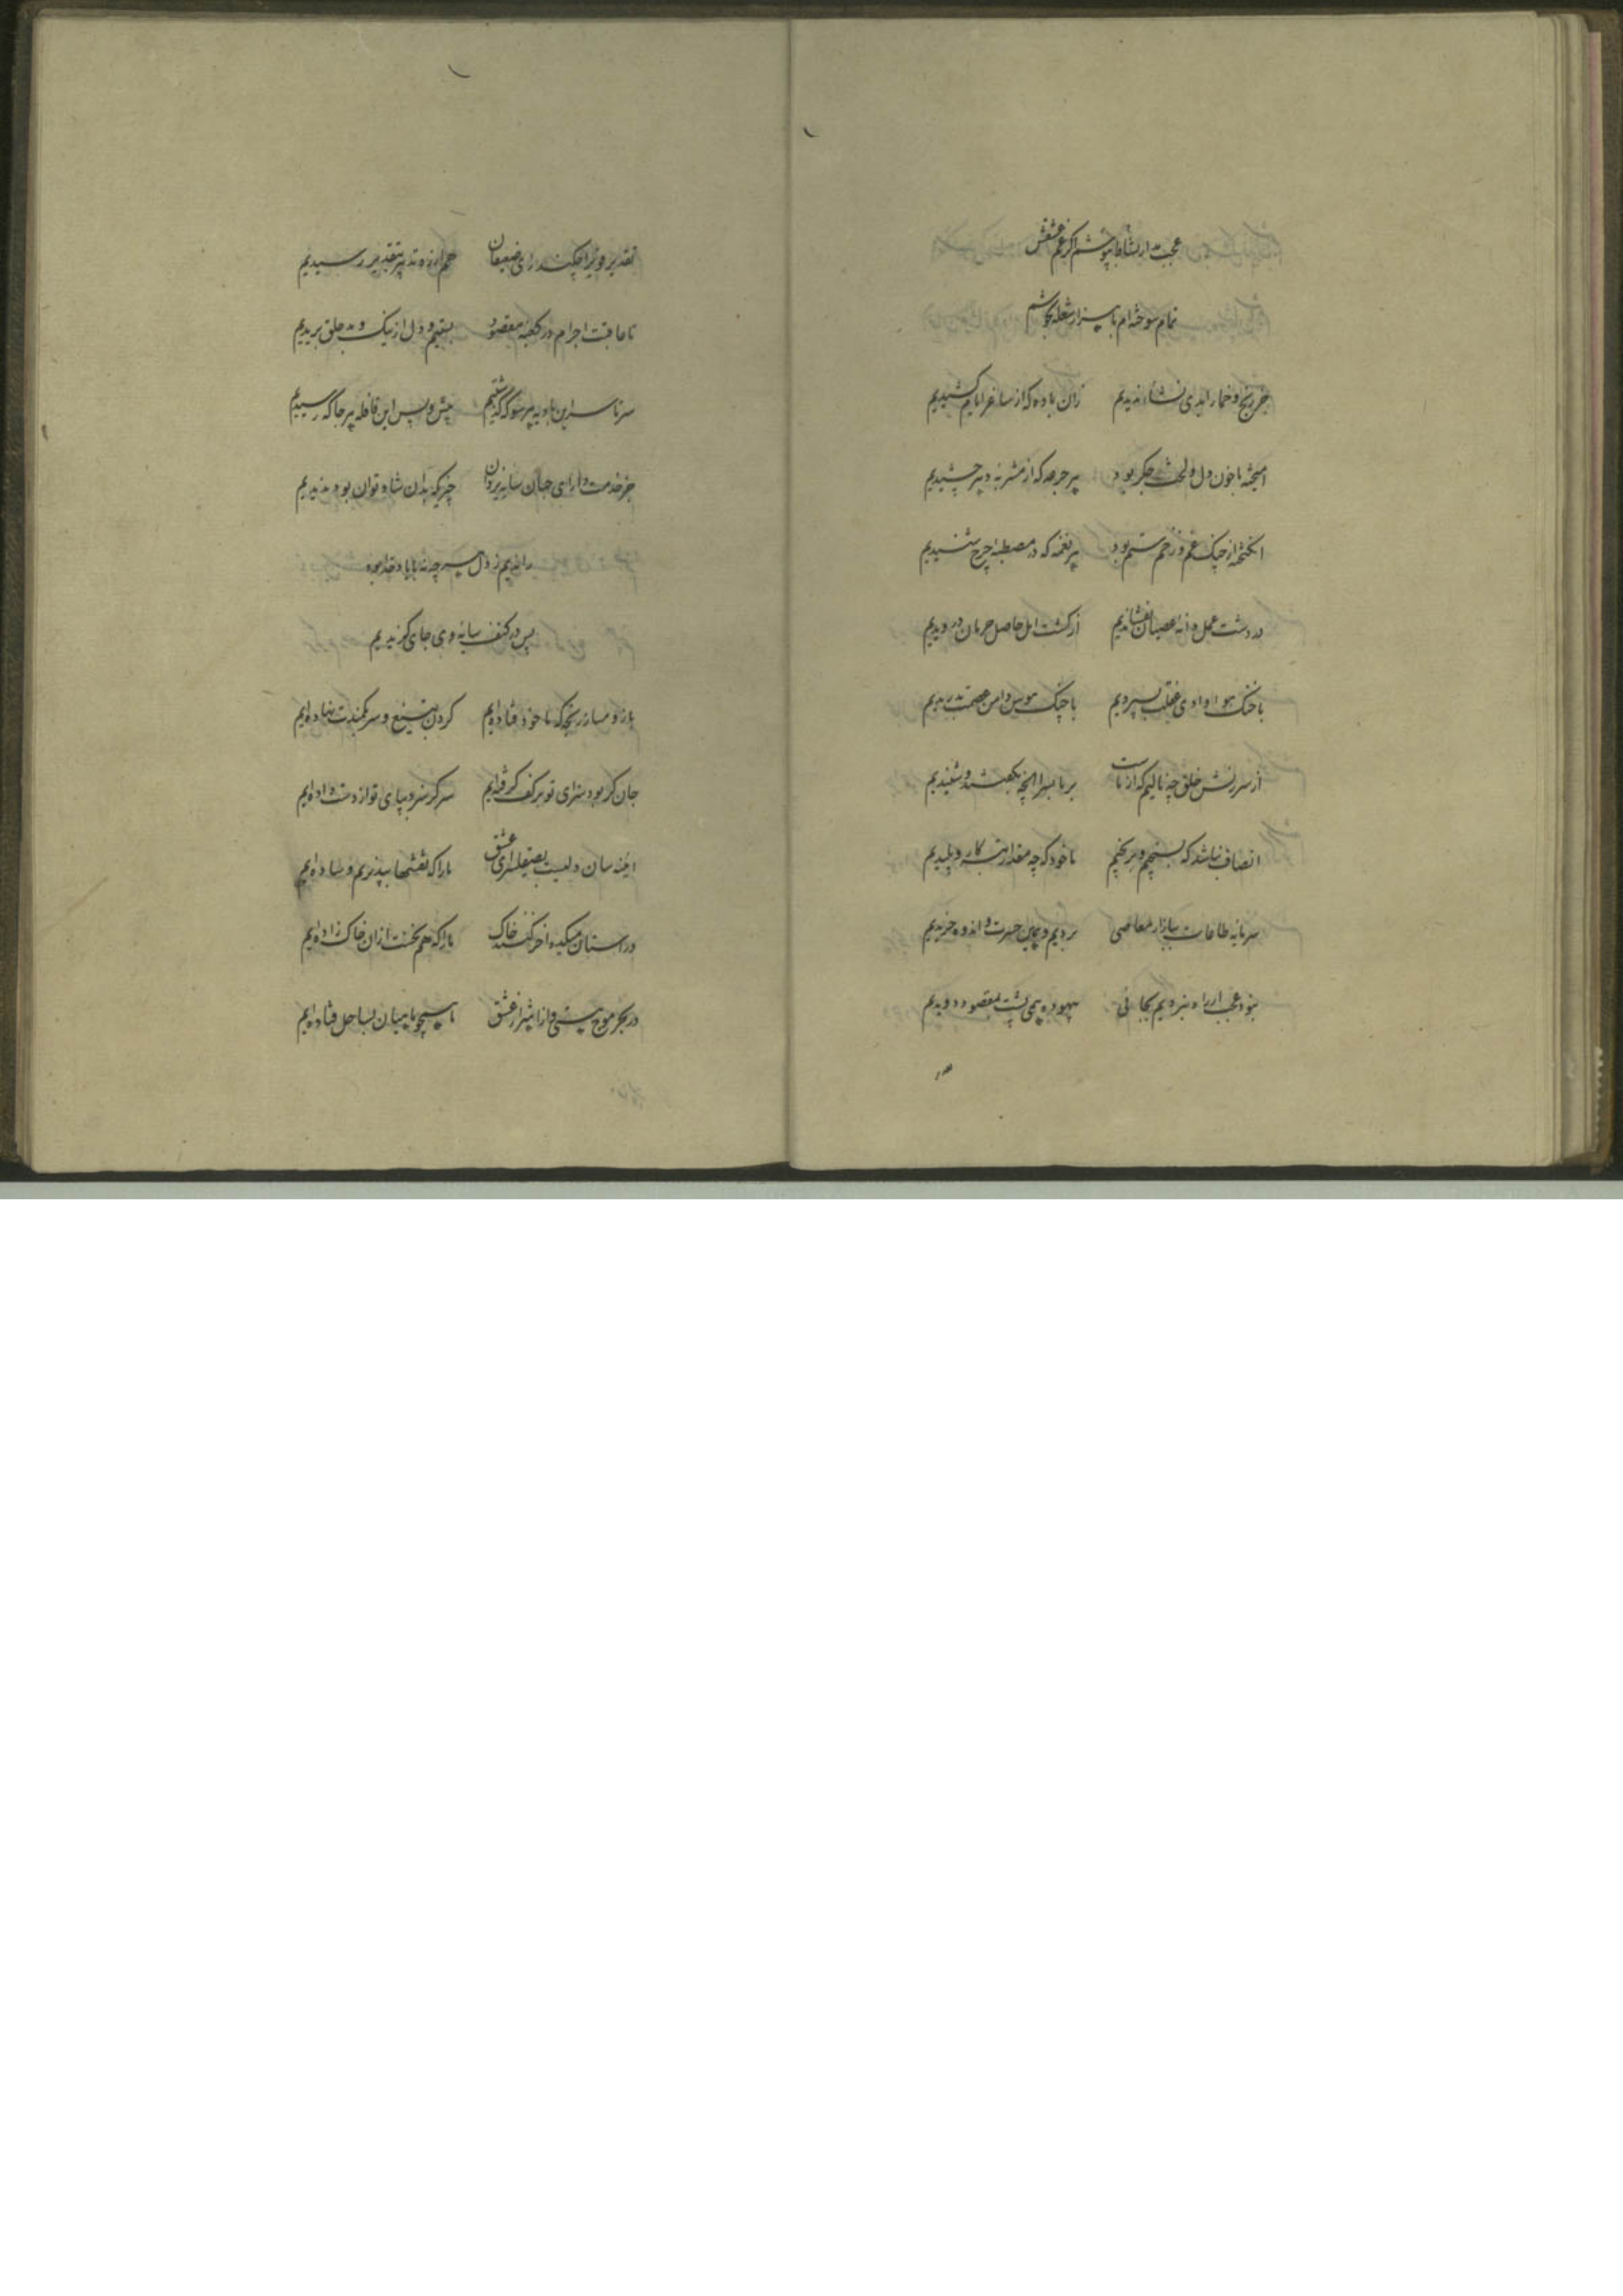 عجب مدار نشاط بپوشم اگر غم عشقش
تمام سوخته‌ام با هزار شعله بجوشم
جز رنج و خمار ای پدری نشأه ندیدیم زان باده که از ساغر ایام کشیدیم
آمیخته با خون دل و لخت جگر بود هر جرعه که از مشربه دهر چشیدیم
انگیخته از چنگ غم و زخم ستم بود هر نغمه که در مصطبه چرخ شنیدیم
در دشت عمل دانه عصیان بفشاندیم از کشت امل حاصل حرمان درویدیم
با خنگ هوا وادی غفلت بسپردیم با چنگ هوس دامن عصمت بدریدیم
از سرزنش خلق چه نالیم که از ماست بر ما بسزا آنچه بگفتند و شنیدیم
انصاف نباشد که بسنجیم و برنجیم ما خود که چه مقدار تبه کار و پلیدیم
سرمایه طاعات ببازار معاصی بردیم و بجایش حسرت و اندوه خریدیم
نبود عجب ار راه نبردیم بجائی بیهوده پی پشت بمقصود دویدیم
تقدیر قوی را چکند رای ضعیفان هم از ره تدبیر بتقدیر رسیدیم
تا عاقبت احرام در کعبه مقصود بستیم و دل از نیک و بد خلق بریدیم
سر تا سر این بادیه هر سو که گذشتیم پیش و پس این قافله هر جا که رسیدیم
جز خدمت دارای جهان سایه یزدان چیزیکه بدان شاد توان بود ندیدیم
راندیم ز دل هر چه نه با یاد خداوند
پس در کنف سایه وی جای گزیدیم
باز و میازار رنجه که ما خود فتاده‌ایم گردن بتیغ و سر بکمندت نهاده‌ایم
جان گر بود سزای تو بر کف گرفته‌ایم سر گر سزد بپای تو از دست داده‌ایم
آینه سان دلیست بصیقلسرای عشق ما را که نقشها بپذیریم و ساده‌ایم
در آستان میکده آخر کنند خاک ما را که هم نخست از آن خاک زاده‌ایم
در بحر موج هستی و از شرار عشق ما همچو ماهیان بساحل فتاده‌ایم